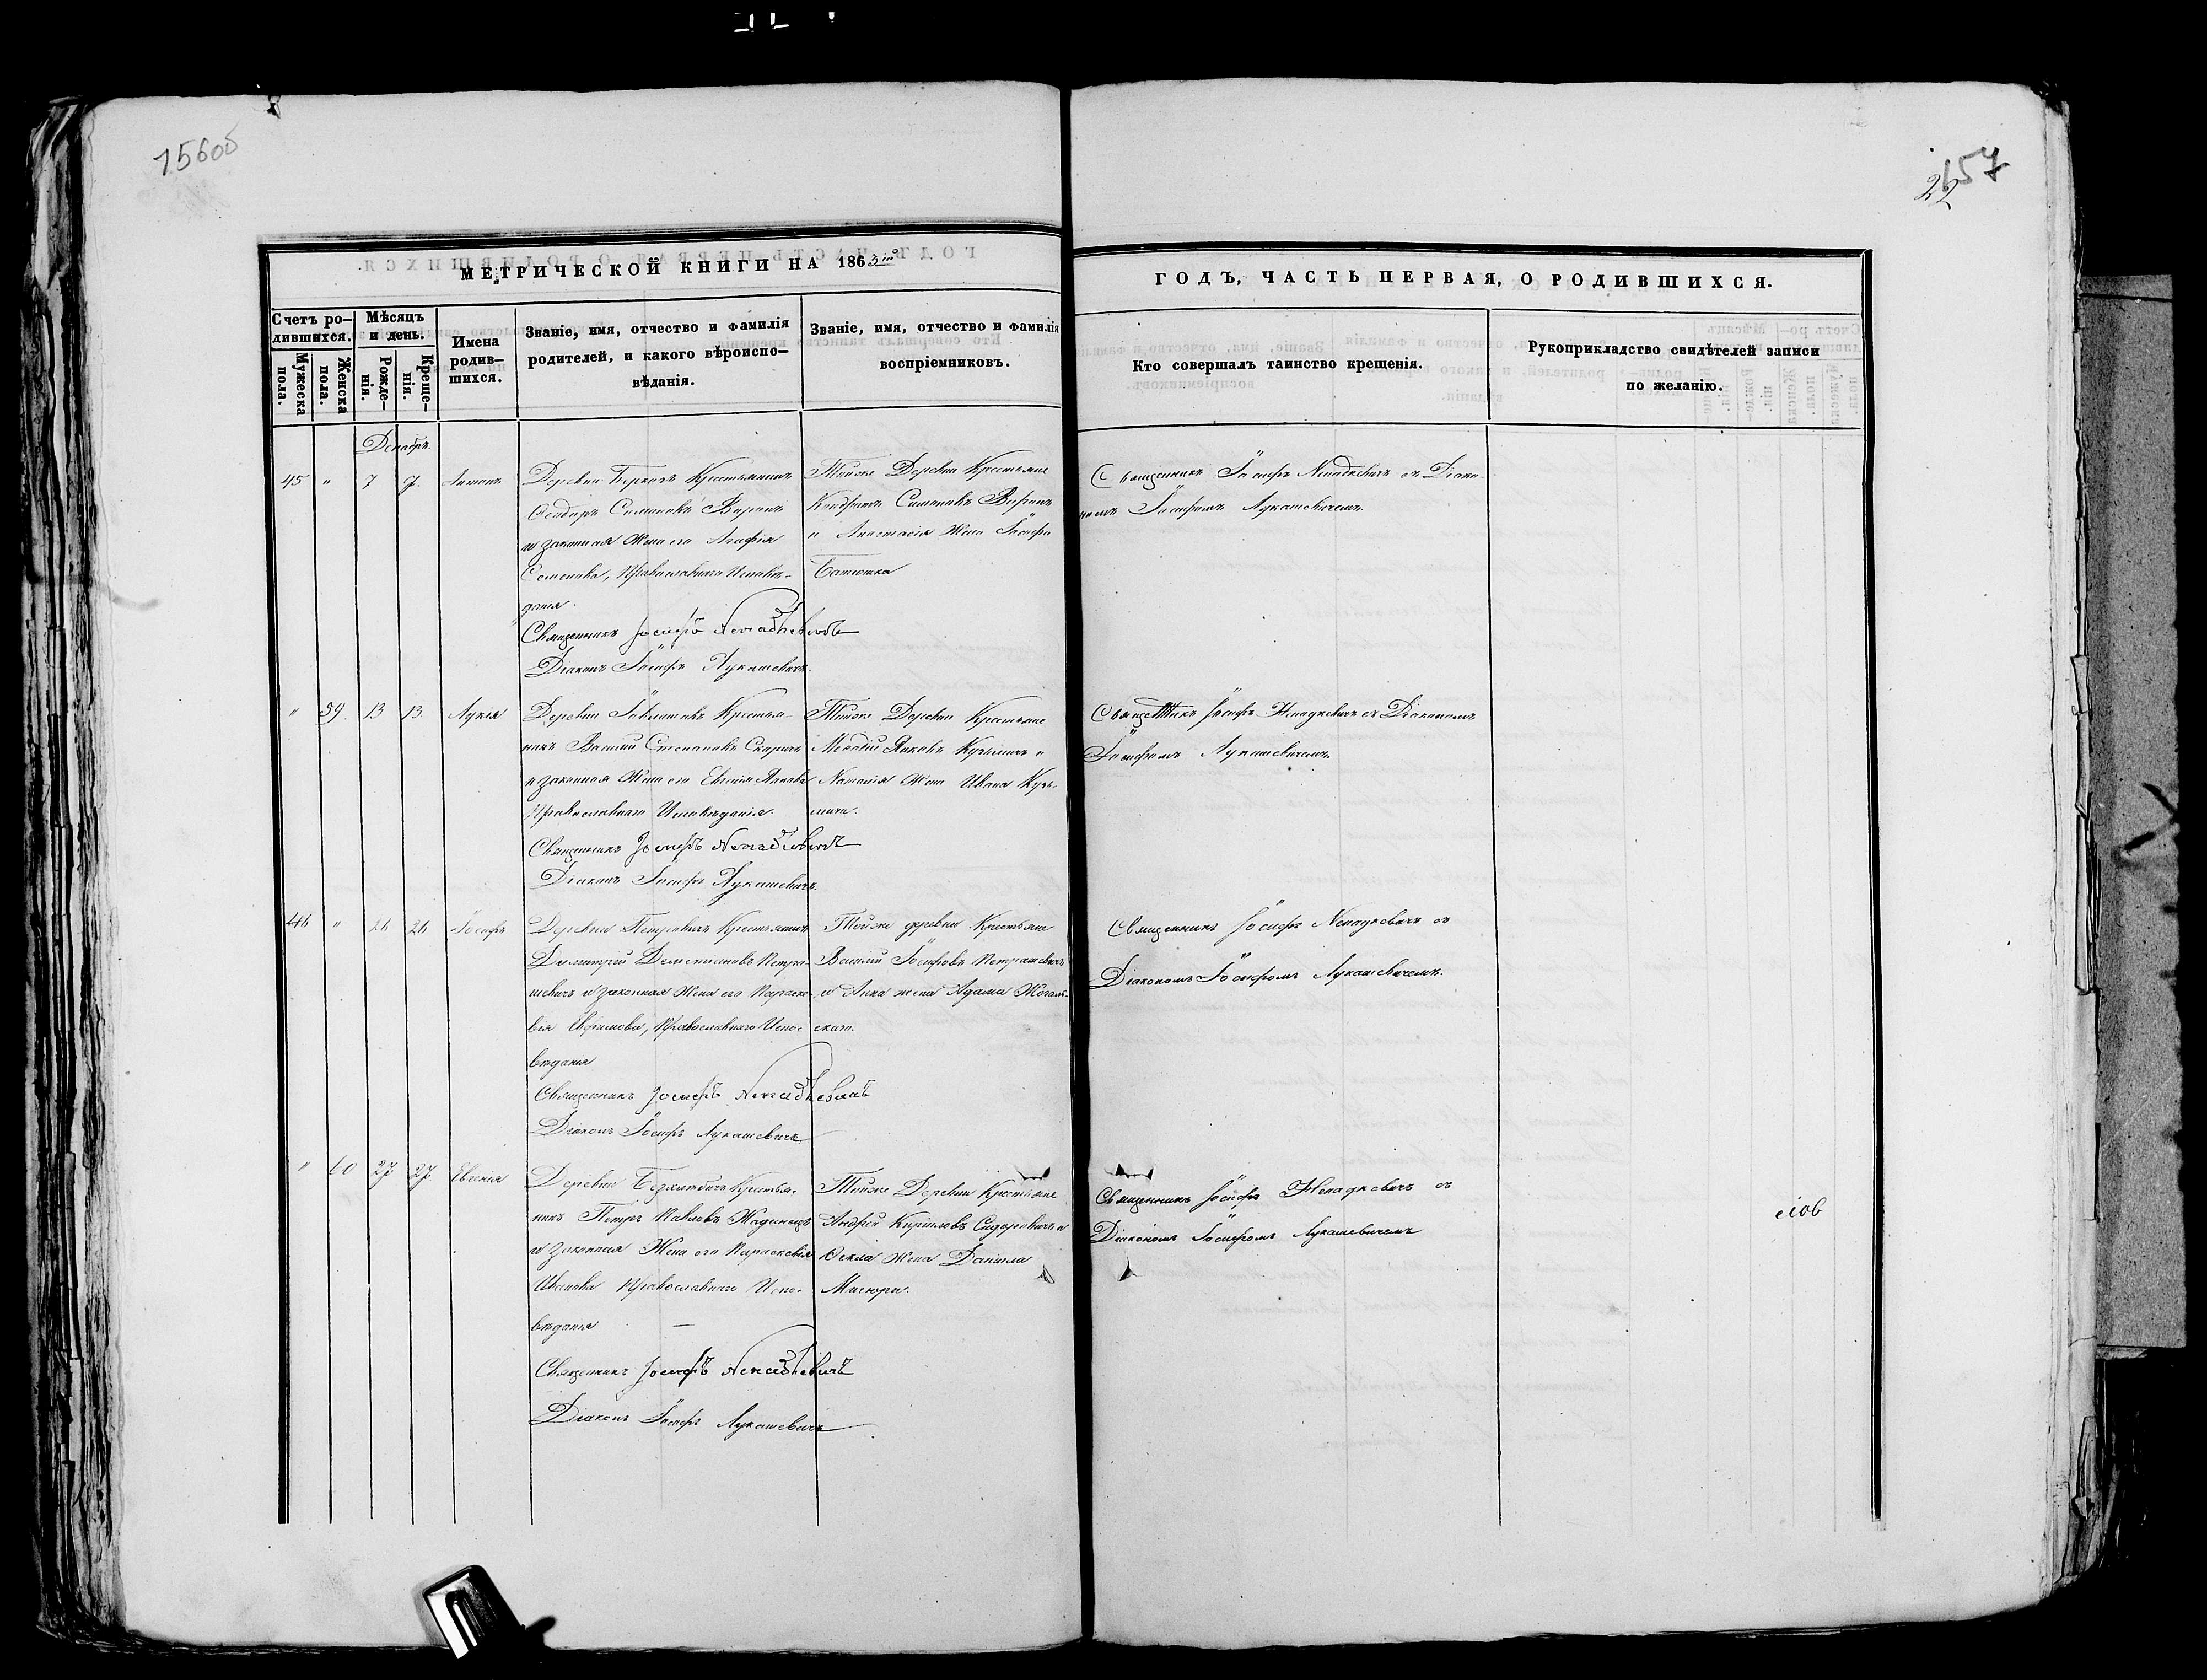 156об
157
22
МЕТРИЧЕСКОЙ КНИГИ НА 1863й
ГОДЪ, ЧАСТЬ ПЕРВАЯ, О РОДИВШИХСЯ.
Счетъ ро-
дившихся.
Мужеска
пола.
Женска
пола.
Мѣсяцъ
и день.
Рожде-
нія.
Креще-
нія.
Имена
родив-
шихся.
Званіе, имя, отчество и фамилія
родителей, и какого вѣроиспо-
вѣданія.
Званіе, имя, отчество и фамилія
воспріемниковъ.
Кто совершалъ таинство крещенія.
Рукоприкладство свидѣтелей записи
по желанію.
Декабрь.
45 " 7 7. Антонъ
Деревни Крестьянинъ
Семеновъ
и законная Жена его Агафія
Семенова, Православнаго Исповѣ-
данія.
Священникъ Іосифъ Ненадкевичъ
Діаконъ Іосифъ Лукашевичъ.
Тойже Деревни Крестьяне
Семеновъ
и Анастасія Жена Іосифа
Священникъ Іосифъ Ненадкевичъ съ Діако-
номъ Іосифомъ Лукашевичемъ.
" 59. 13 13. Лукія
Деревни Крестья-
нинъ Василій Степановъ
и законная Жена его Евгенія
Православнаго Исповѣданія.
Священникъ Іосифъ Ненадкевичъ
Діаконъ Іосифъ Лукашевичъ.
Тойже Деревни Крестьяне
Кузьмичъ и
Наталія Жена Ивана Кузь-
мича.
Священникъ Іосифъ Ненадкевичъ съ Діакономъ
Іосифомъ Лукашевичемъ.
46 " 26 26 Іосифъ
Деревни Петровичъ Крестьянинъ
Димитрій Петра-
шевичъ и законная Жена его Параске-
вія Евфимова, Православнаго Испо-
вѣданія
Священникъ Іосифъ Ненадкевичъ
Діаконъ Іосифъ Лукашевичъ
Тойже деревни Крестьяне
Василій Іосифовъ Петрашевичъ
и Анна жена Адама
Священникъ Іосифъ Ненадкевичъ съ
Діакономъ Іосифомъ Лукашевичемъ.
" 60 27 27. Евгенія
Деревни Крестья-
нинъ Петръ Павловъ
и законная Жена его Параскевія
Иванова Православнаго Испо-
вѣданія
Священникъ Іосифъ Ненадкевичъ
Діаконъ Іосифъ Лукашевичъ
Тойже Деревни Крестьяне
Андрей Кириловъ Сидоровичъ и
Фекла Жена Даніила
Священникъ Іосифъ Ненадкевичъ съ
Діакономъ Іосифомъ Лукашевичемъ